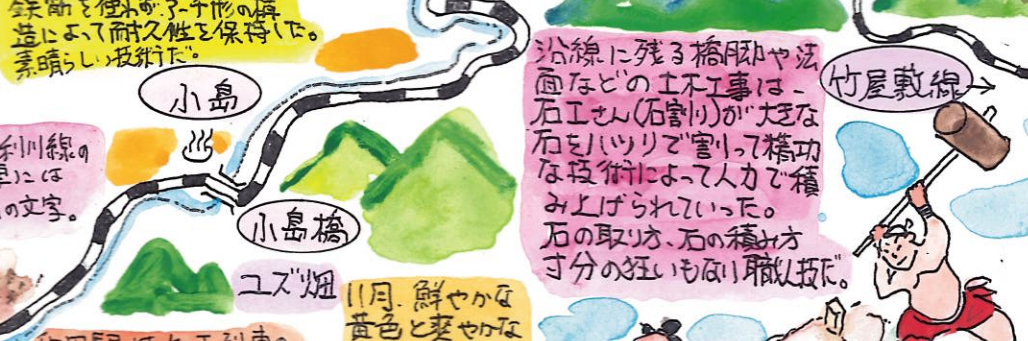 鉄筋を使わず、アーチ形の構
造によって耐久性を保持した。
素晴らしい技術だ。
小島
利川線の
には
の文字。
小島橋
ユズ畑
11月、鮮やかな
黄色と爽やかな
沿線に残る橋脚や法
面などの土木工事は、
石工さん(石割り)が大きな
石をハツリで割って精巧
な技術によって人力で積
み上げられていった。
石の取り方、石の積み方
寸分の狂いもない職人技だ。
竹屋敷線→